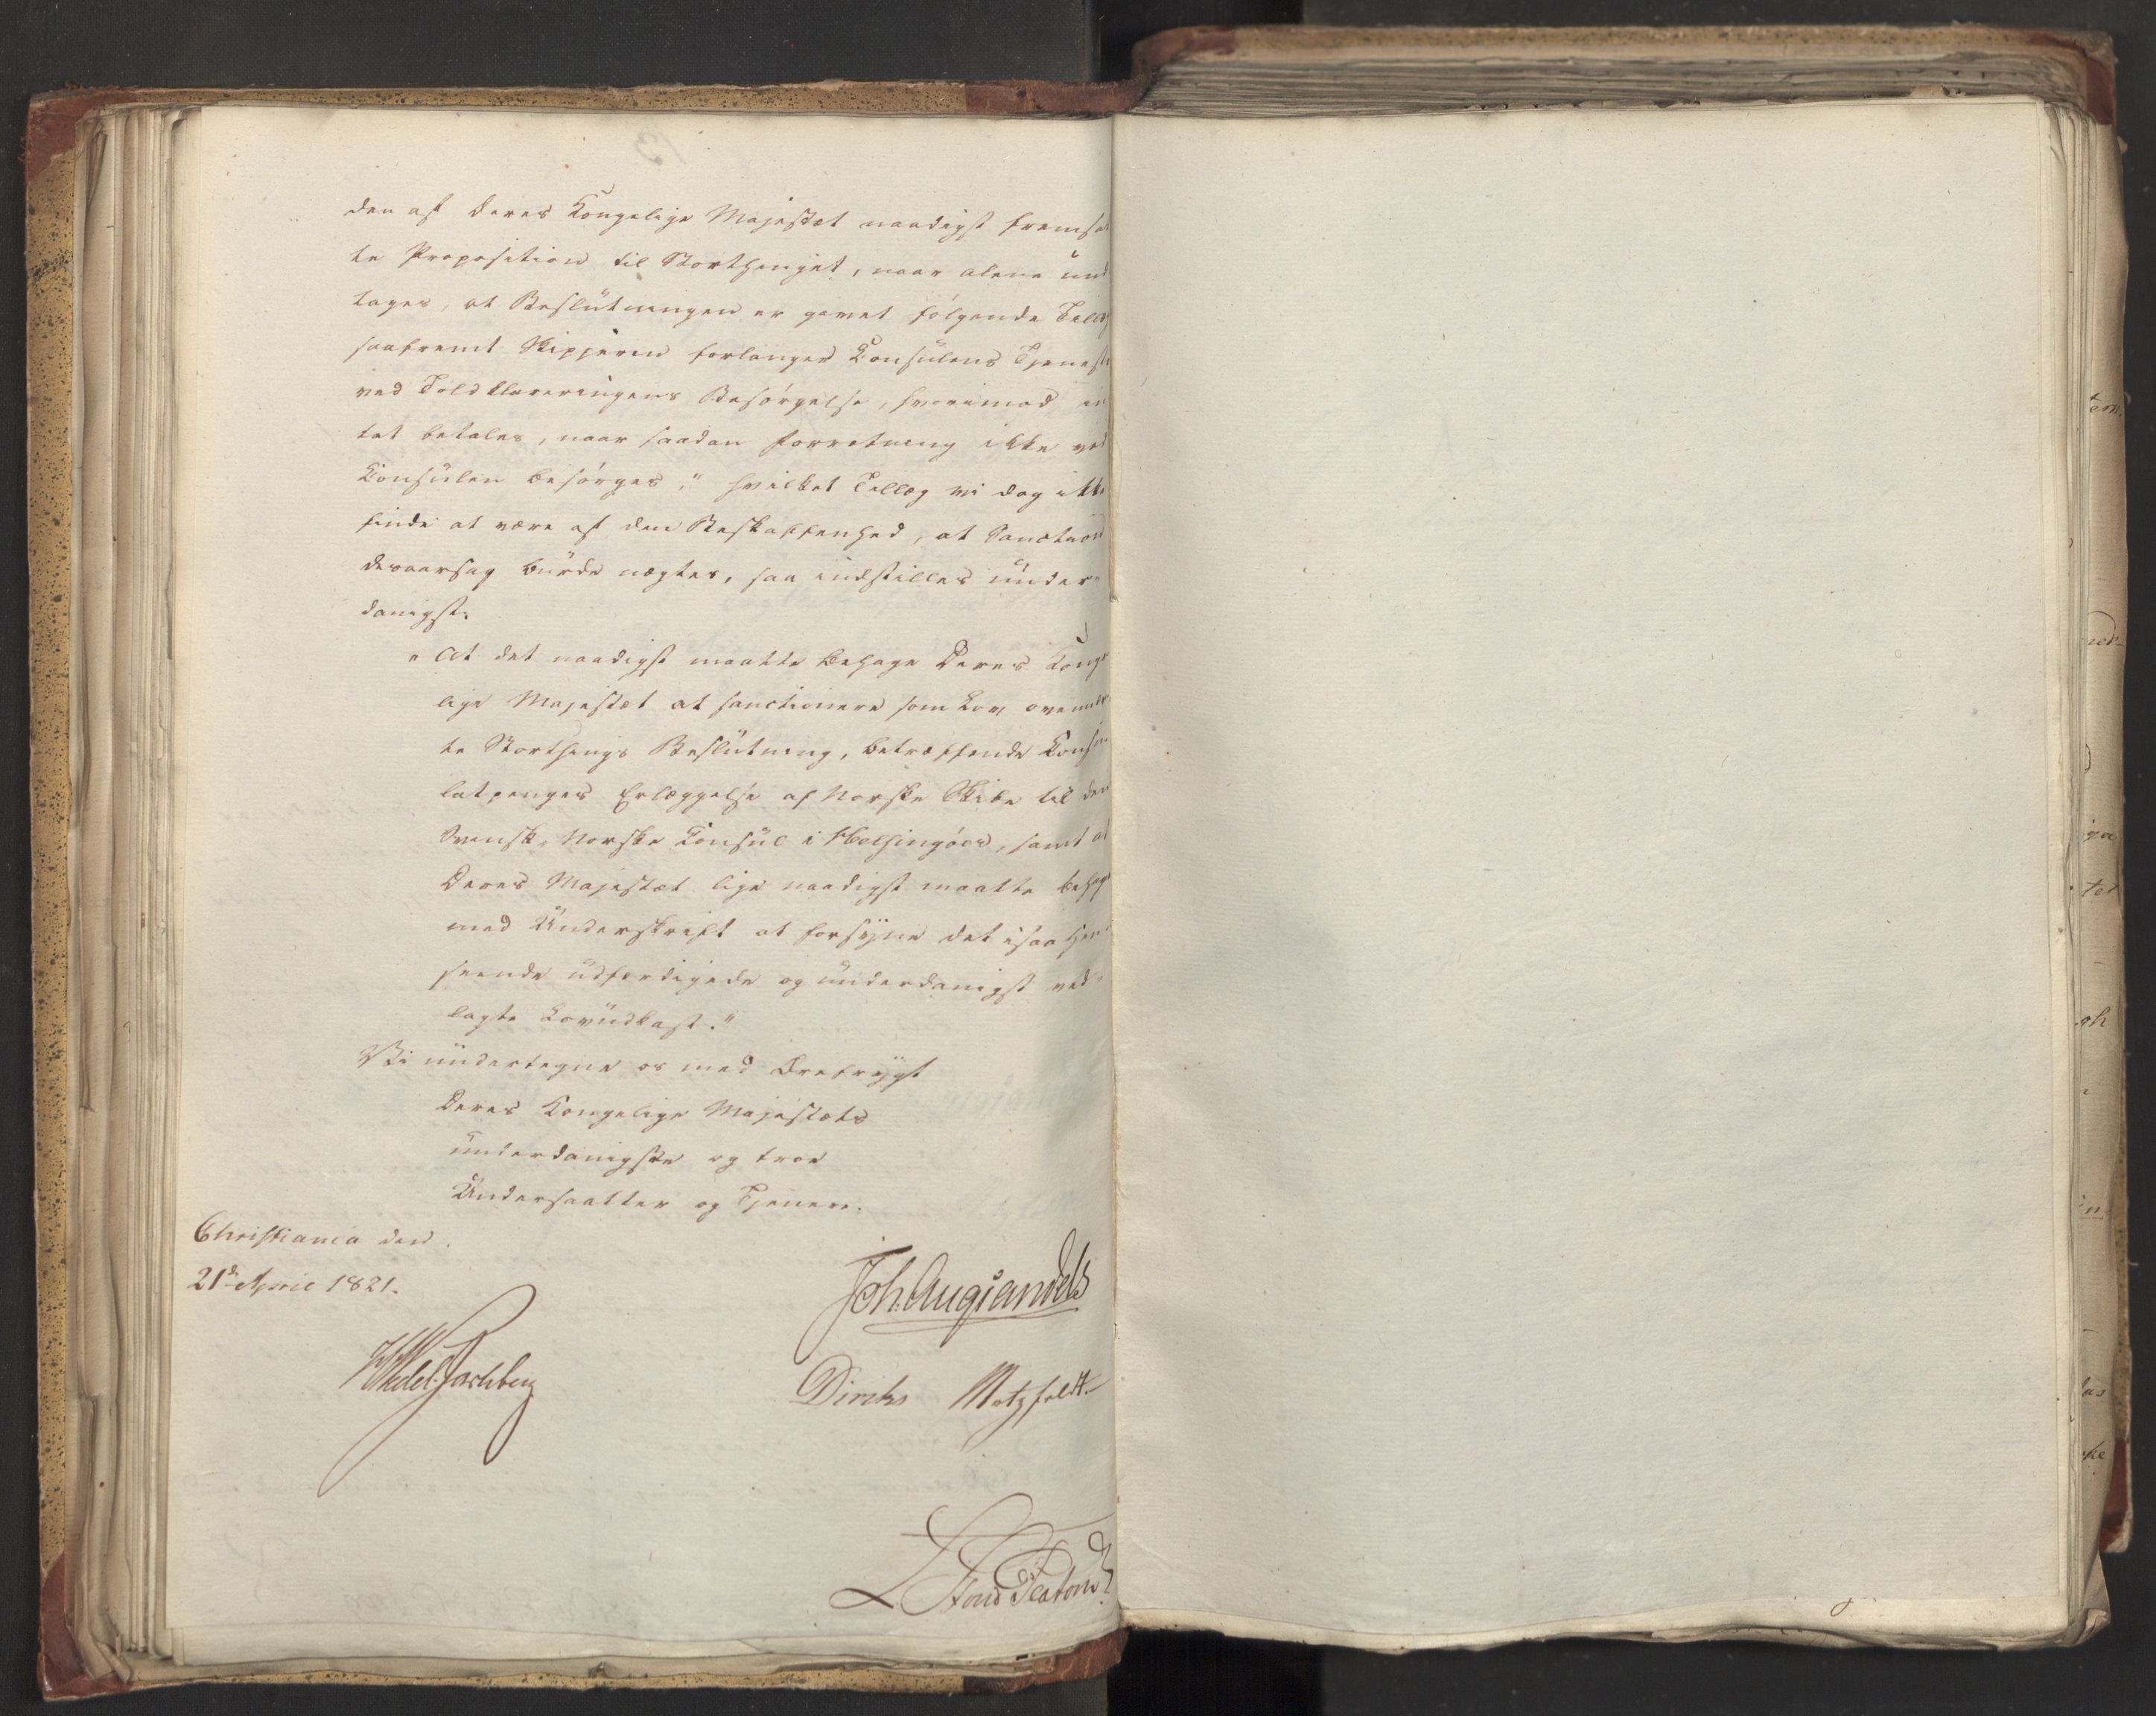 den af Deres Kongelige Majestæt naadigst fremsat
te Proposition til Storthinget, naar alene und
tages, at Beslutningen er gevet følgende Tillæg
saafremt Skipperen forlanger Consulens Tjeneste
ved Toldklareringens Besørgelse, hvorimod in
tet betales, naar saadan Forretning ikke ved
Consulen besørges," hvilket Tillæg vi dog ikke
finde at være af den Beskaffenhed, at Sanction
desaarsag burde nægtes, saa indstilles under-
danigst:
"At det naadigst maatte behage Deres Konge
lige Majestæt at sanctionere som Lov ovenmeld
te Storthings Beslutning, betræffende Consu
latpenges Erlæggelse af Norske Skibe til den
Svensk-Norske Consul i Helsingöer, samt at
Deres Majestæt lige naadigst maatte behage
med Underskrift at forsyne det i saa Hen
seende udfærdigede og underdanigst ved-
lagte Lovudkast."
Vi undertegne os med Ærefrygt
Deres Kongelige Majestæts
underdanigste og troe
Undersaatter og Tjenere.
Christiania den
21de April 1821.
Joh. Aug. Sandels
Wedel Jarlsberg
Diriks Motzfeldt